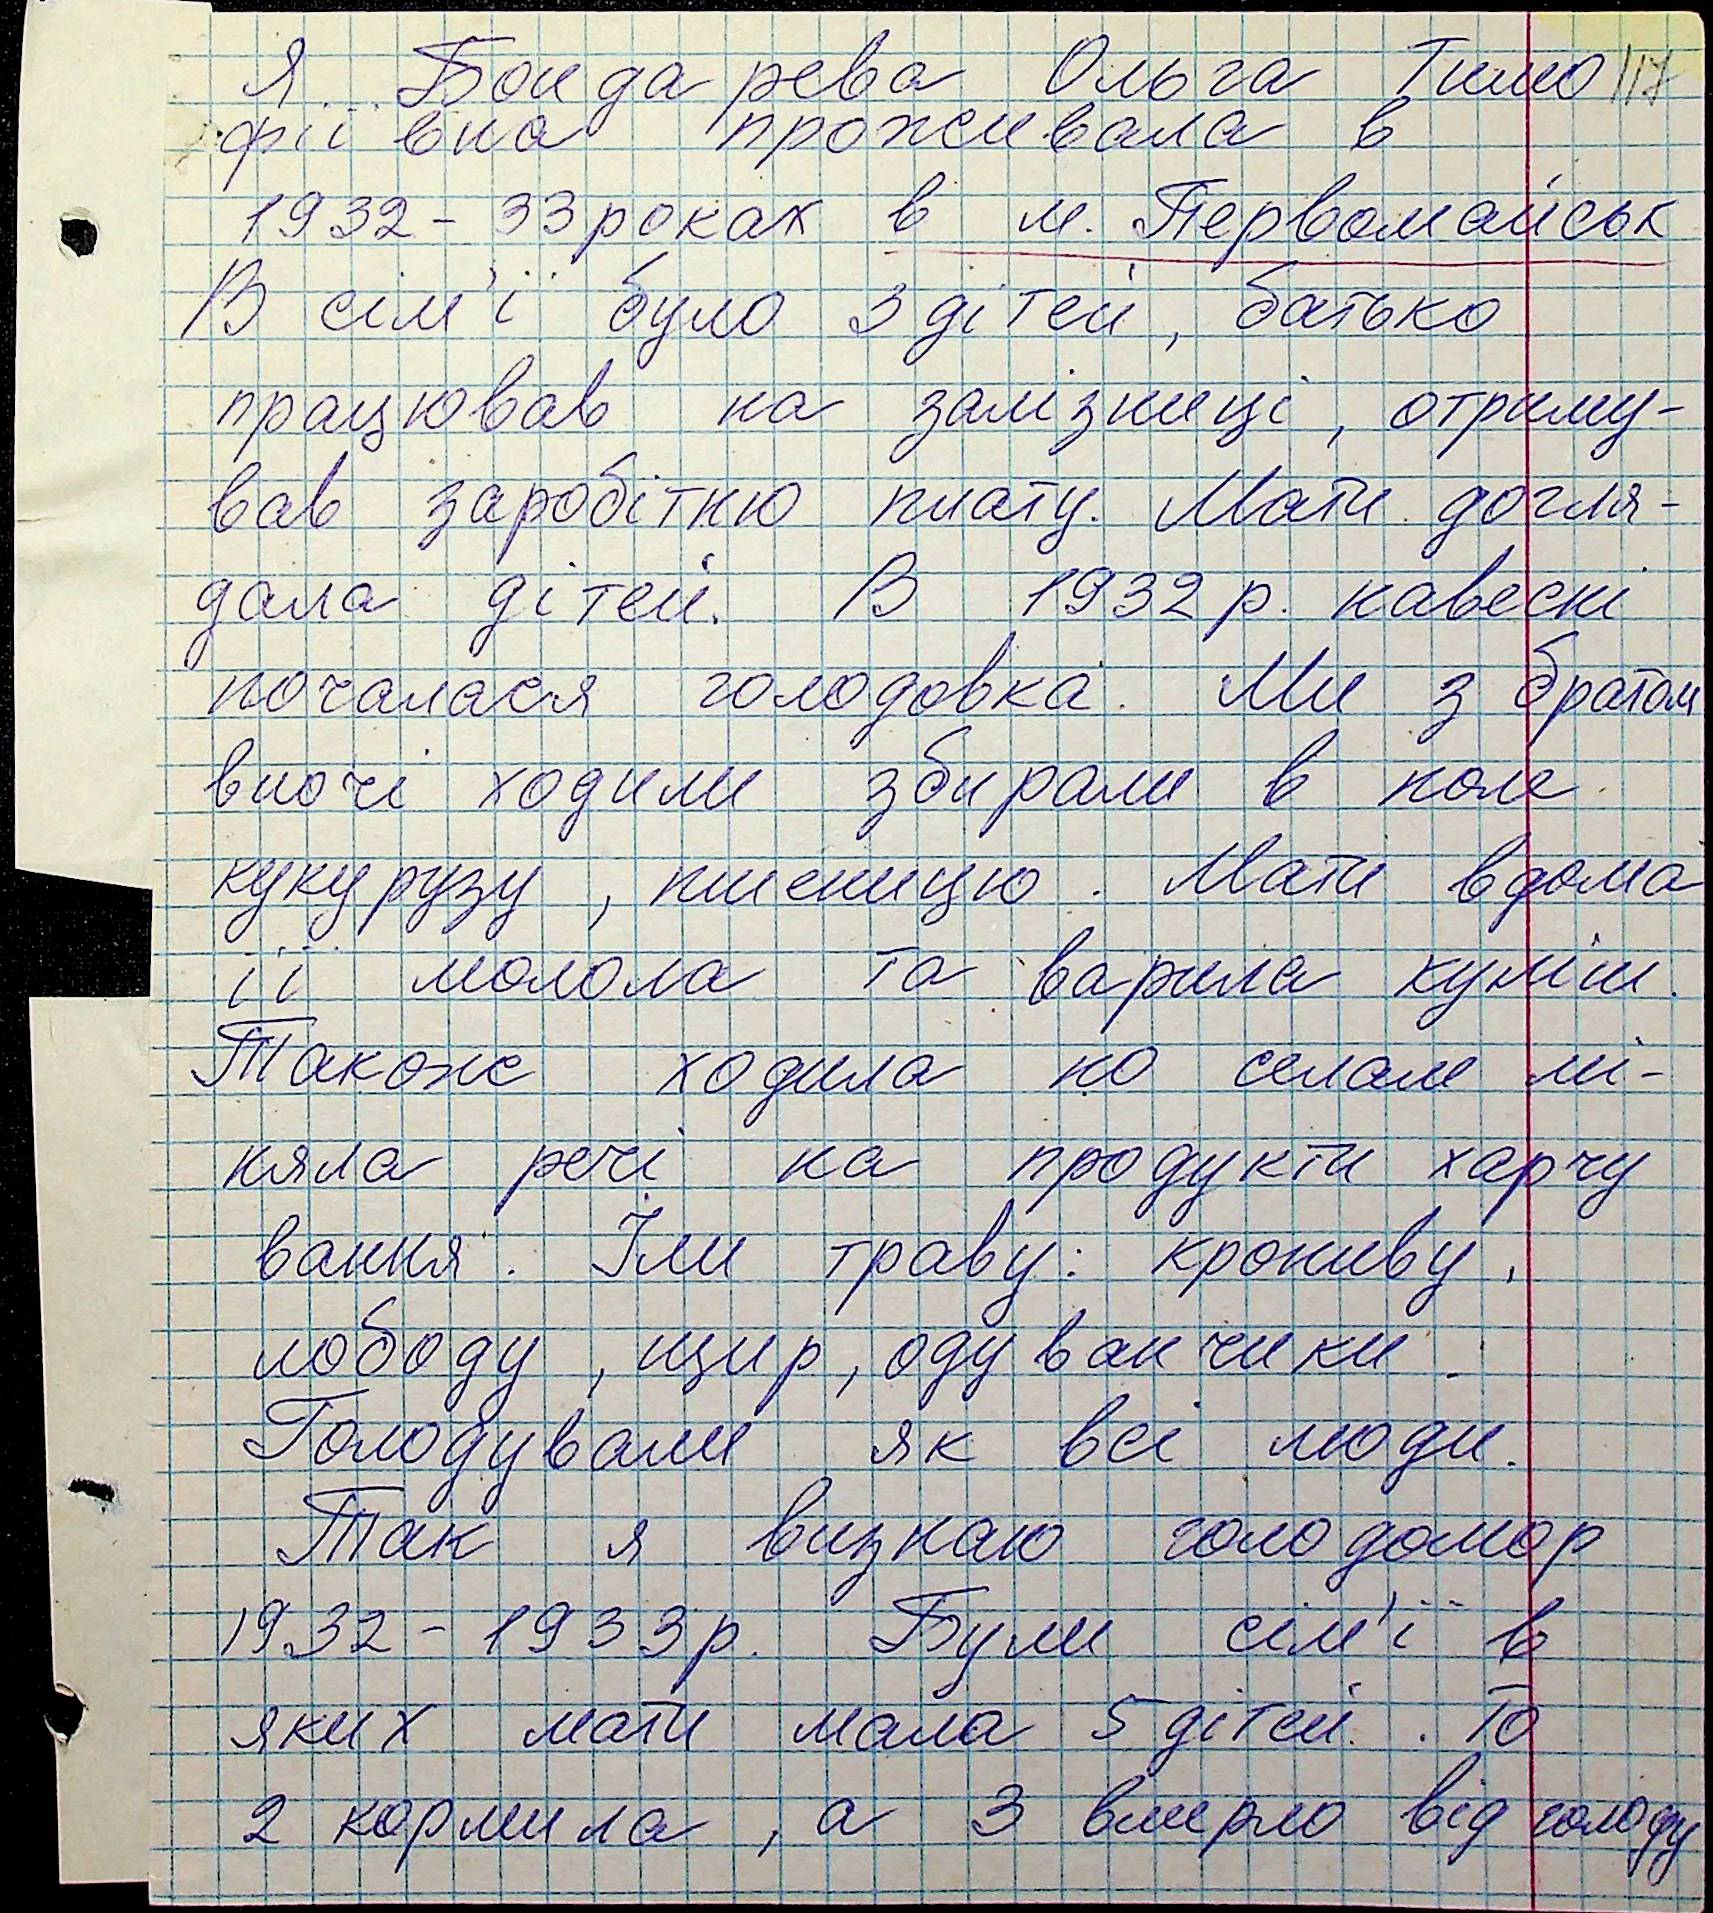 Я Бондарева Ольга Тимо 117
фіївна проживала в
1932 - 33 роках в м. Первомайськ
В сім'ї було 3 дітей, батько
працював на залізниці, отриму-
вав заробітню плату. Мати догля-
дала дітей. В 1932 р. навесні
почалася голодовка. Ми з братом
вночі ходили збирали в поле
кукурузу, пшеницю. Мати вдома
її молола та варила куліш.
Також ходила по селам мі-
няла речі на продукти харчу
вання. Їли траву: кропиву,
лободу, щир, одуванчики.
Голодували як всі люди.
Так я визнаю голодомор
1932 - 1933 р. Були сім'ї в
яких мати мала 5 дітей. То
2 кормила, а 3 вмерло від голоду